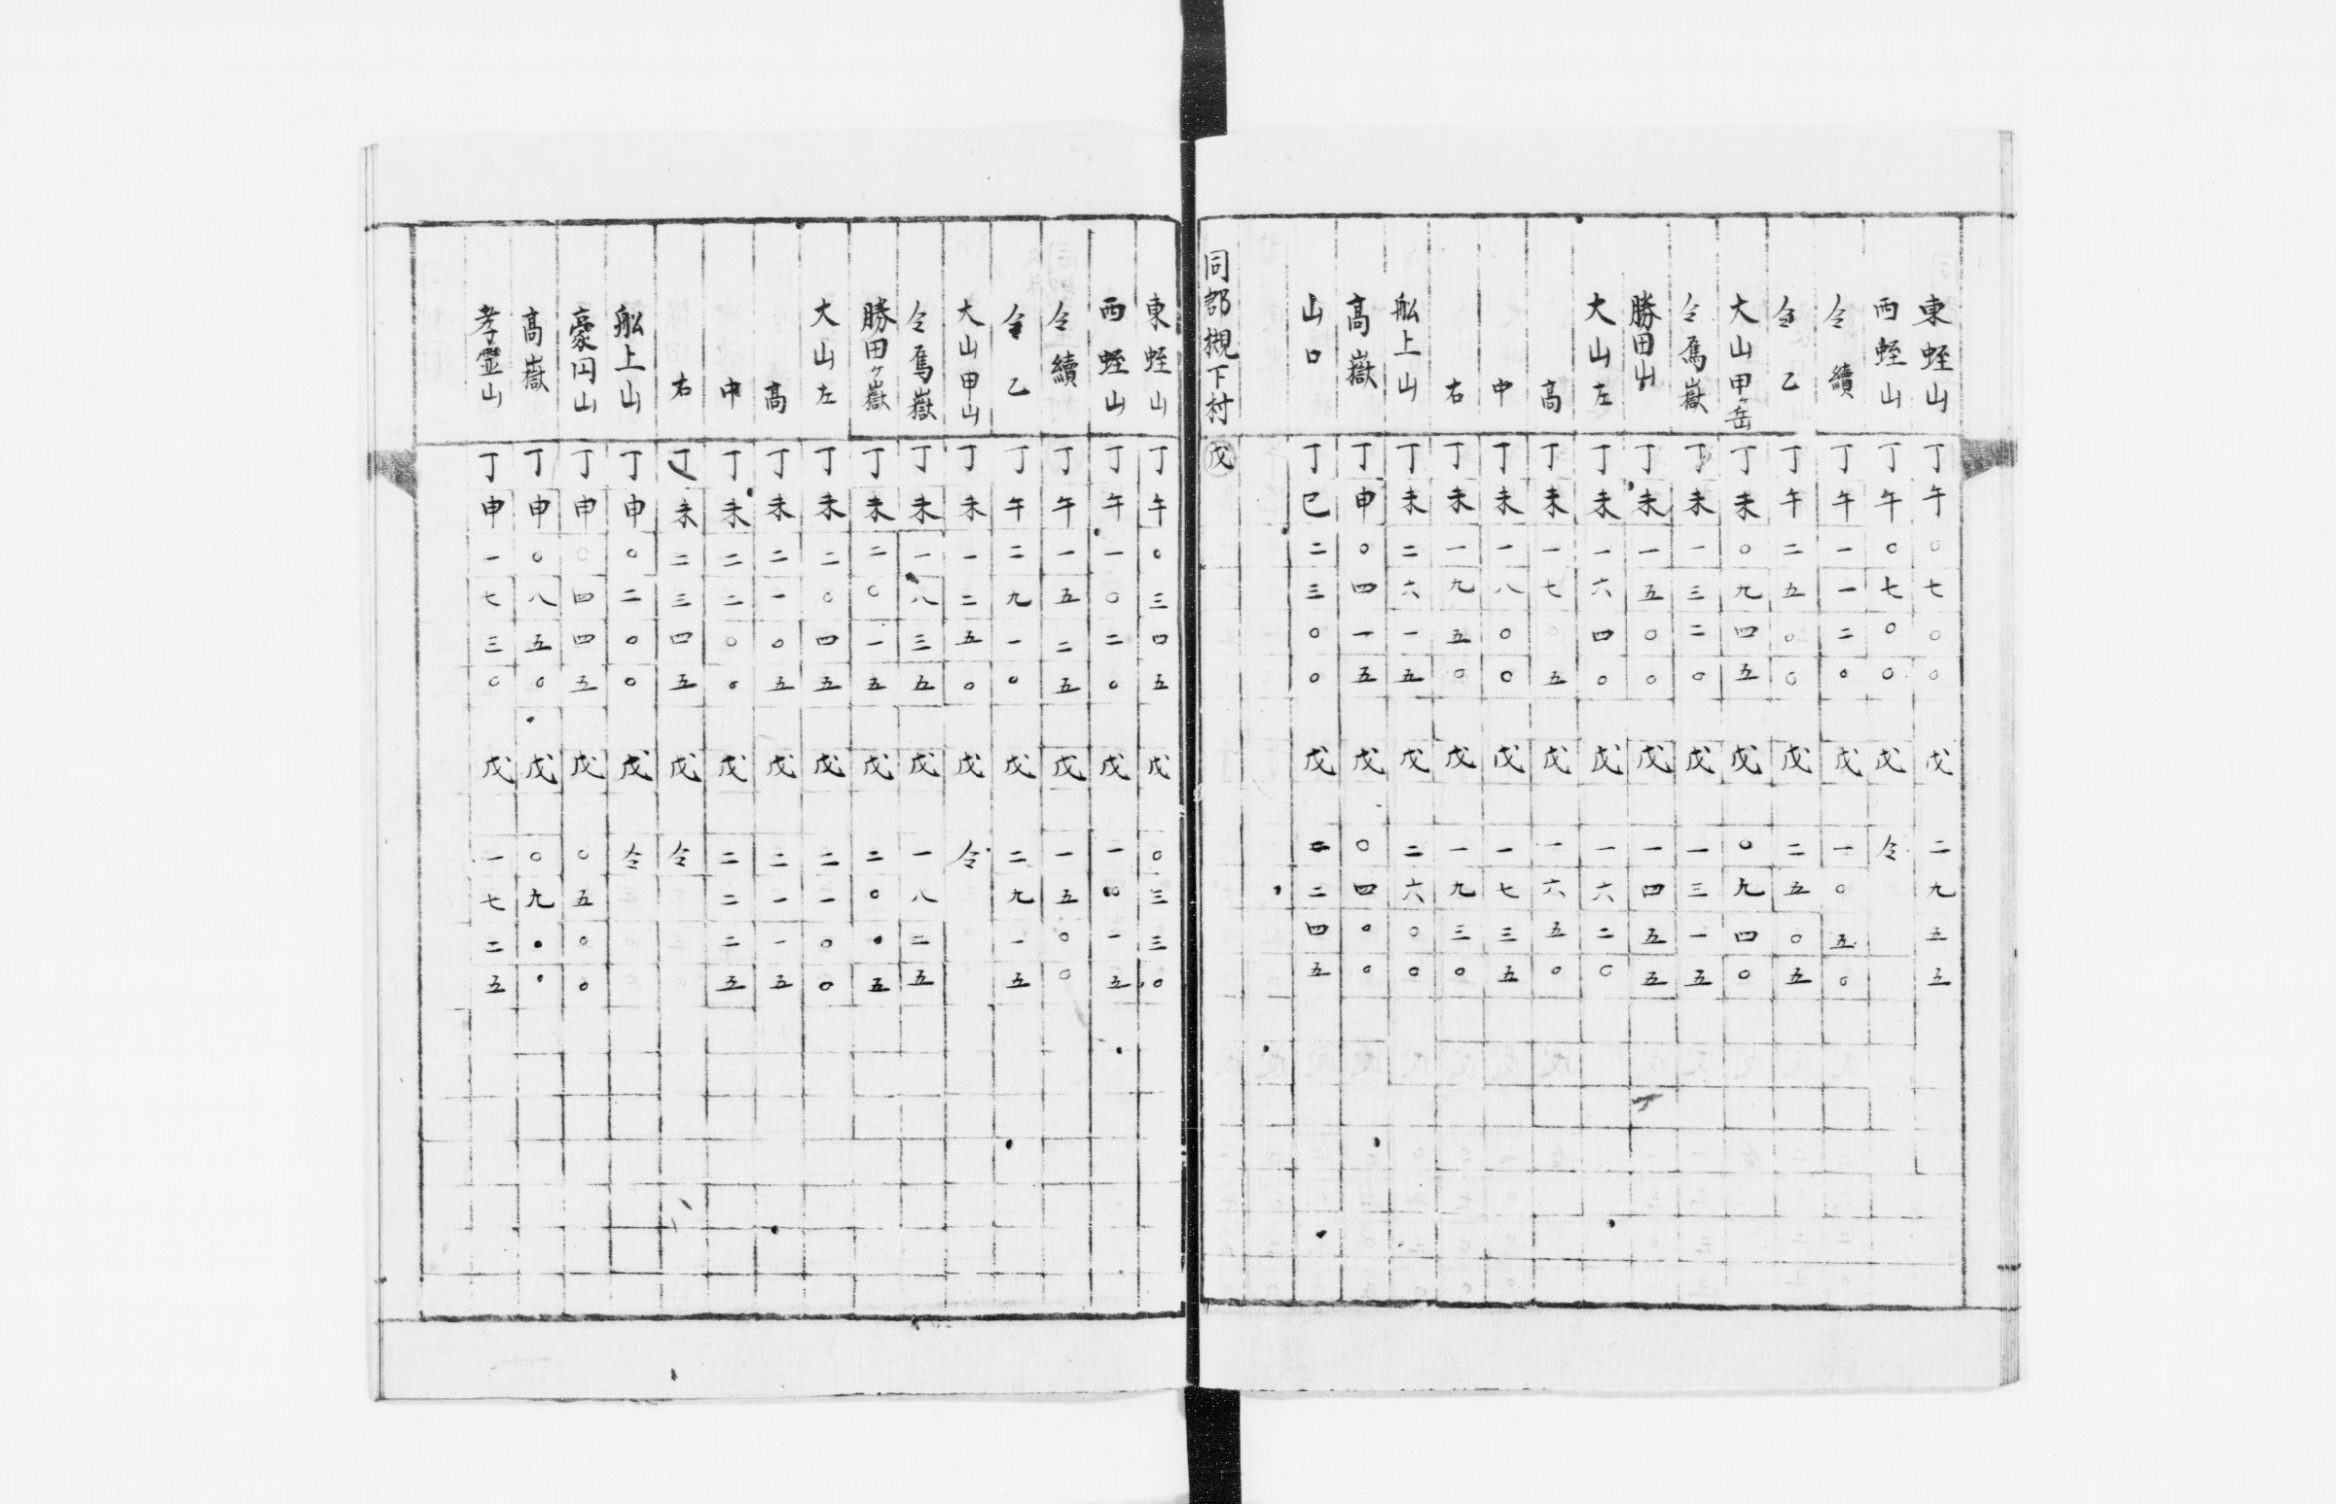 東蛭山 丁午〇七〇〇 戊 二九五五
西蛭山 丁午〇七〇〇 戊 仝
仝續 丁午一一二〇 戊 一〇五〇
仝乙 丁午二五〇〇 戊 二五〇五
大山甲ヶ岳 丁未〇九四五 戊 〇九四〇
仝馬嶽 丁未一三二〇 戊 一三一五
勝田山 丁未一五〇〇 戊 一四五五
大山左 丁未一六四〇 戊 一六二〇
高 丁未一七〇五 戊 一六五〇
中 丁未一八〇〇 戊 一七三五
右 丁未一九五〇 戊 一九三〇
舩上山 丁未二六一五 戊 二六〇〇
高嶽 丁申〇四一五 戊 〇四〇〇
山口 丁巳二三〇〇 戊 二二四五
同郡槻下村 戊
東蛭山 丁午〇三四五 戊 〇三三〇
西蛭山 丁午一〇二〇 戊 一〇一五
仝續 丁午一五二五 戊 一五〇〇
仝乙 丁午二九一〇 戊 二九一五
大山甲山 丁未一二五〇 戊 仝
仝馬嶽 丁未一八三五 戊 一八二五
勝田ヶ嶽 丁未二〇一五 戊 二〇〇五
大山左 丁未二〇四五 戊 二一〇〇
高 丁未二一〇五 戊 二一一五
中 丁未二二〇〇 戊 二二二五
右 丁未二三四五 戊 仝
舩上山 丁申〇二〇〇 戊 仝
豪円山 丁申〇四四五 戊 〇五〇〇
高嶽 丁申〇八五〇 戊 〇九〇〇
孝霊山 丁申一七三〇 戊 一七二五